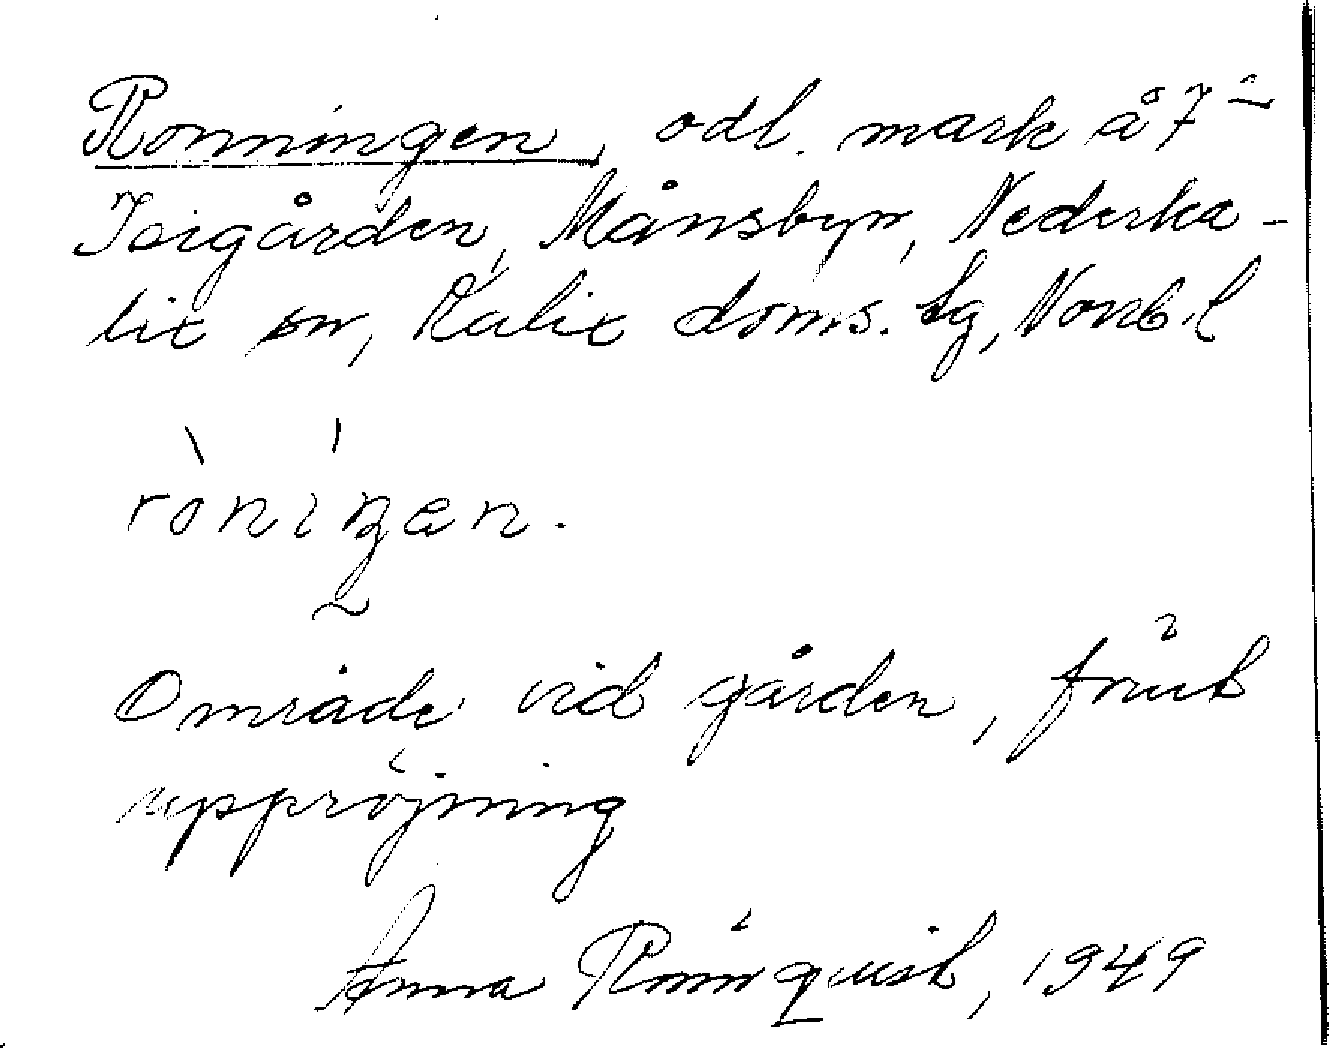 Ronningen, odl. mark å 7 =
Isigården, Månsbyn, Nederka-
lix sn, Kalix doms. lg, Norrb. l
ròníŋen.
Område vid gården, först
uppröjning
Anna Rönnquist, 1949